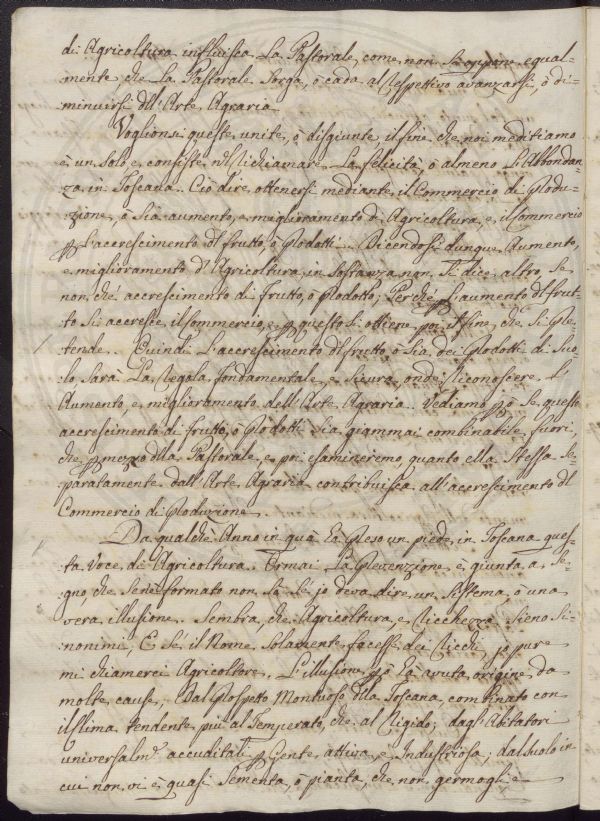 di Agricoltura influisca La Pastorale, come non si oppone equal-
mente che La Pastorale sorga, ò cada al respettivo avanzarsi, ò di-
minuirsi dell'Arte Agraria.
Voglionsi queste unite, ò disgiunte, il fine che noi meditiamo
è un solo, e consiste nel richiamare La felicità, ò almeno L'Abbondan-
za in Toscana. Ciò dire ottenersi mediante il Commercio di Produ-
zione, ò sia aumento, e miglioramento d'Agricoltura, e il Commercio
p L'accrescimento del frutto, ò Prodotti. Dicendosi dunque Aumento,
e miglioramento d'Agricoltura, in sostanza non si dice altro, se
non, ché accrescimento di frutto, ò Prodotto; Perché p L'aumento del frut-
to si accresce il Commercio, e p questo si ottiene poi il fine, che si Pre-
tende. Quindi L'accrescimento del frutto, ò sia dei Prodotti di Suo-
lo sarà La regola fondamentale, e sicura, onde riconoscere L'
Aumento, e miglioramento dell'Arte Agraria. Vediamo pò se questo
accrescimento di frutto, ò Prodotti sia giammai combinabile, fuori,
che p mezzo della Pastorale, e poi esamineremo, quanto ella stessa se-
paratamente dall'Arte Agraria contribuisca all'accrescimento del
Commercio di Produzione.
Da qualche Anno in quà hà Preso un piede in Toscana ques-
ta voce di Agricoltura. Ormai La Prevenzione è giunta a se-
gno, che se ne è formato non sò sé jo deva dire un Sistema, ò una
vera illusione. Sembra, che Agricoltura, e Ricchezze sieno Si-
nonimi, E sé il Nome solamente facesse dei Ricchi, jo pure
mi chiamerei Agricoltore. L'illusione pò hà avuta origine da
molte cause; Dal Prospetto Montuoso della Toscana, combinato con
il Clima tendente più al Temperato, che al Rigido; dagl'Abitatori
universalm.e accuditati p Gente attiva, e Industriosa; dal Suolo in
cui non vi è quasi Sementa, ò pianta, che non germogli e